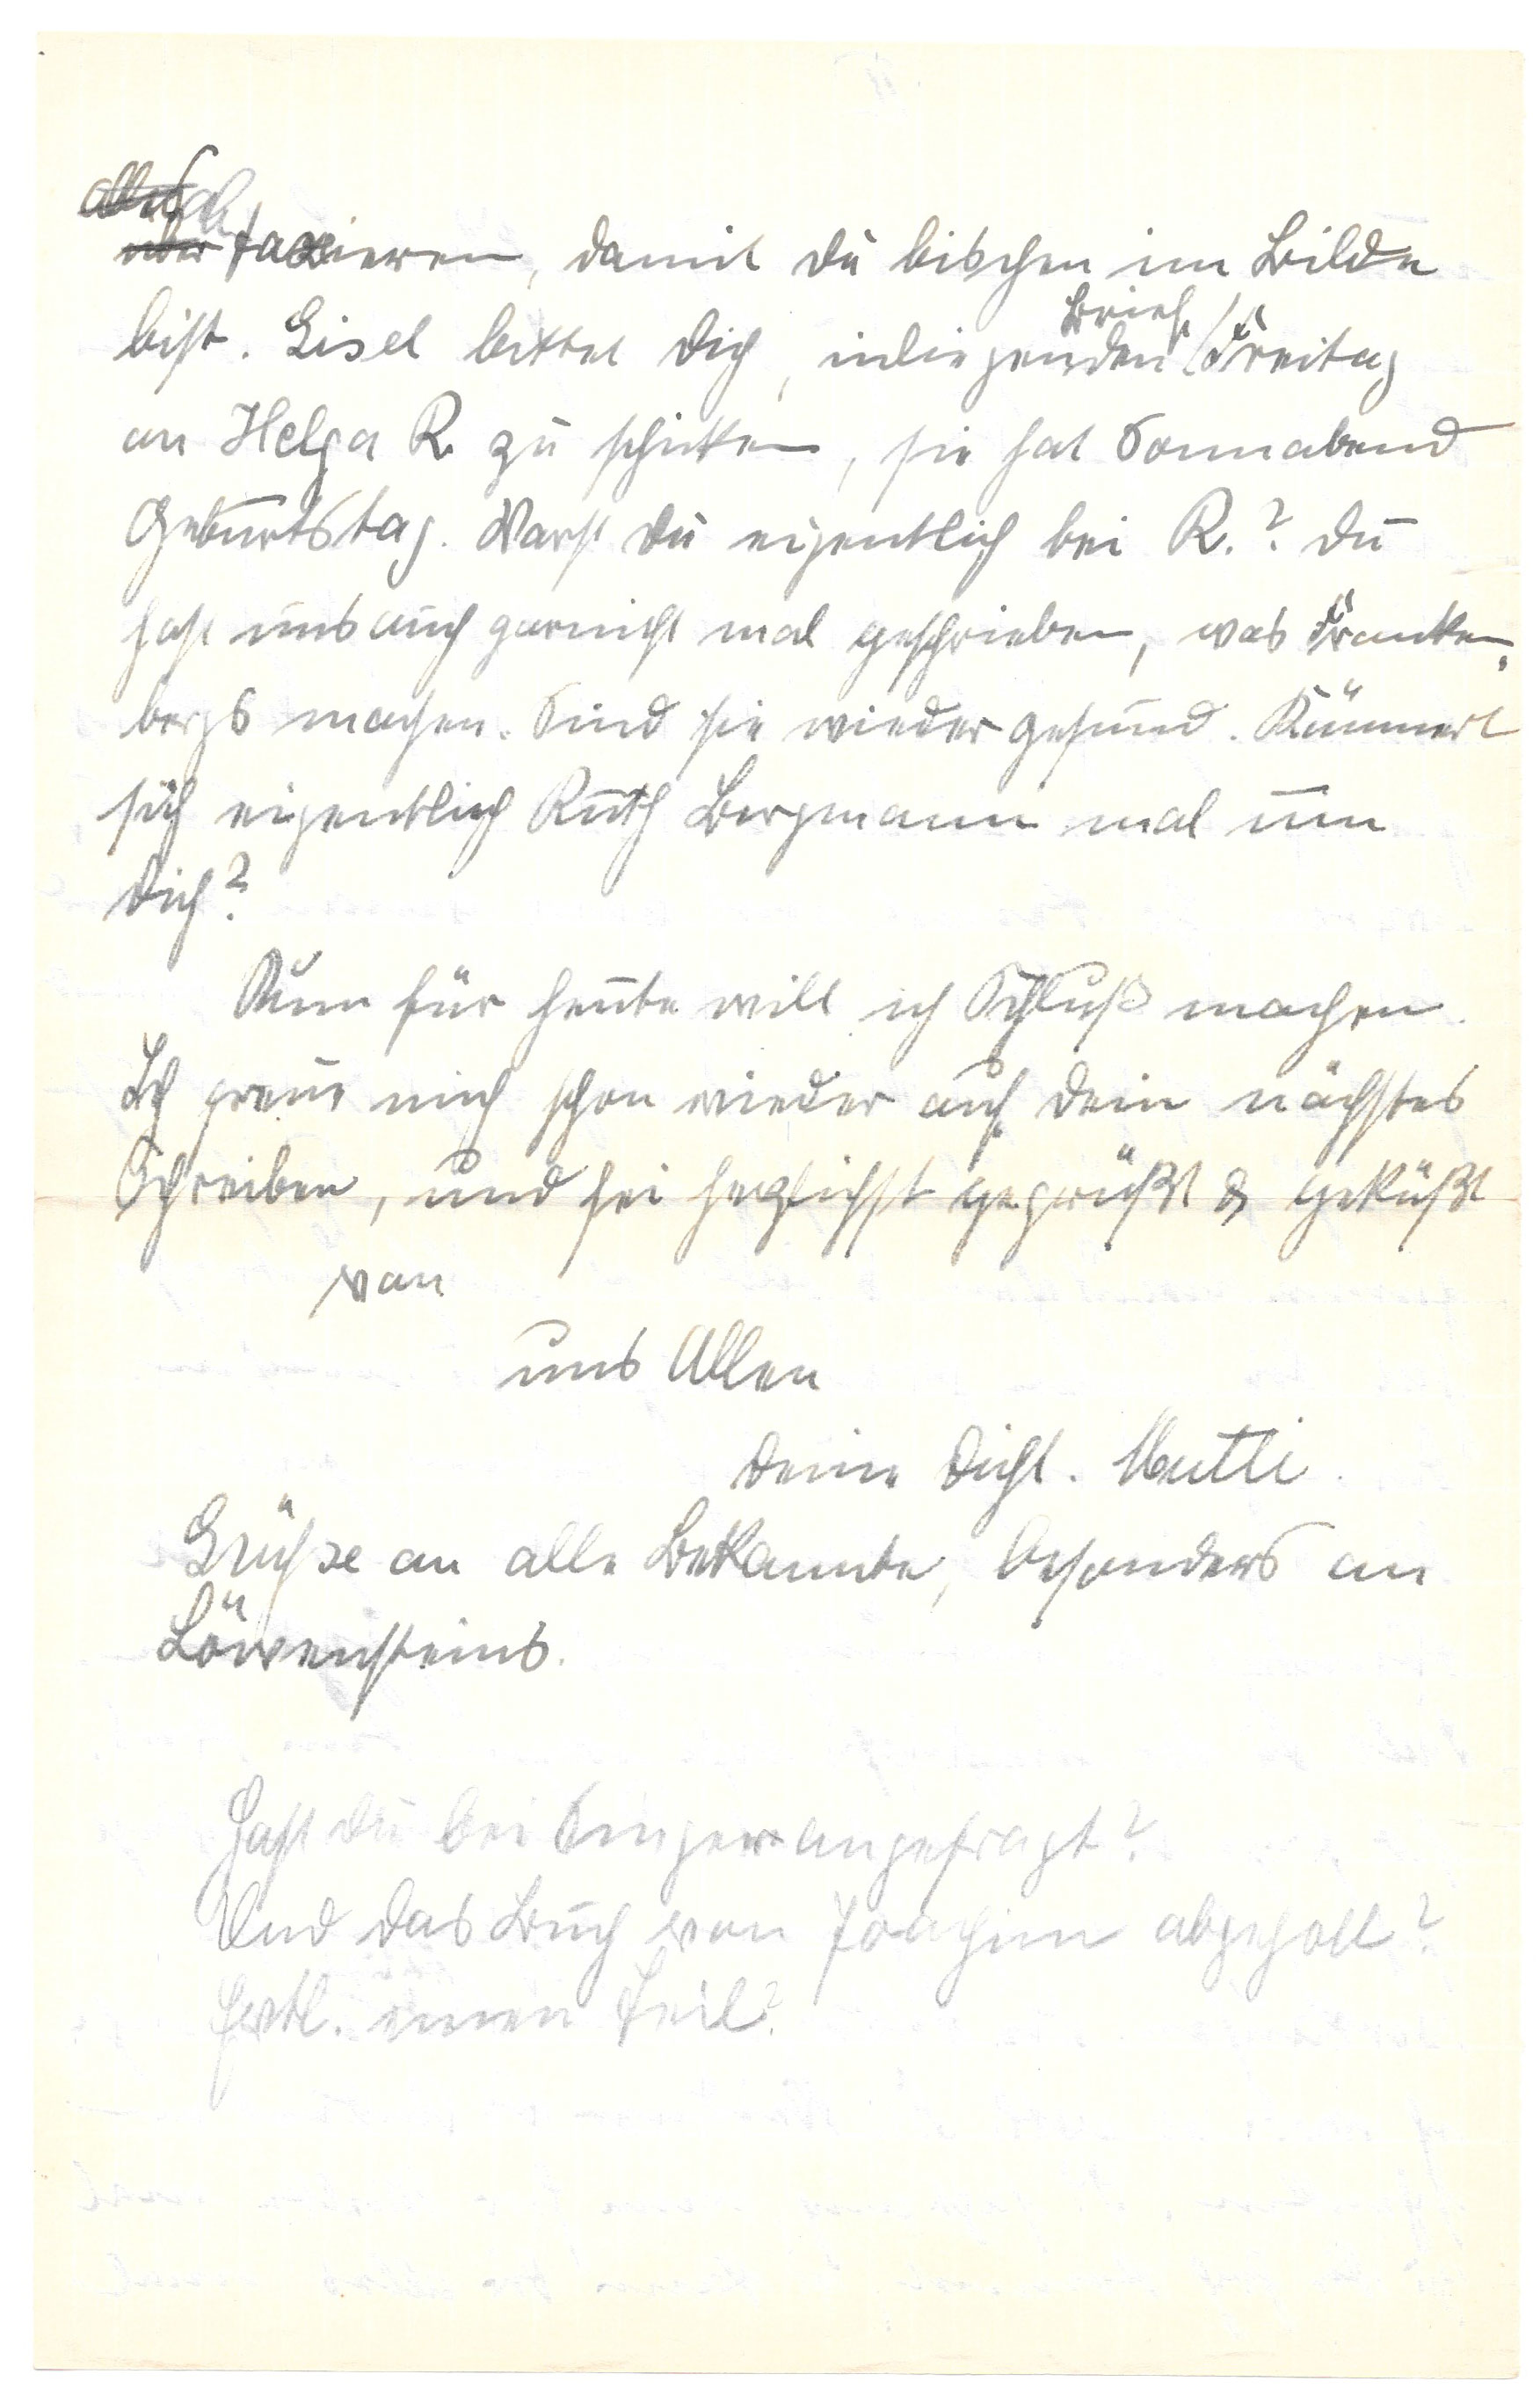 taxieren, damit du bischen im Bilde
bist. Gisel bittet dich, inliegenden Brief Freitag
an Helga R. zu schicken, sie hat Sonnabend
Geburtstag. Warst du eigentlich bei R.? Du
hast uns auch garnicht mal geschrieben, was Franken-
bergs machen. Sind sie wieder gesund. Kümmert
sich eigentlich Ruth Bergmann mal um
dich?
Nun für heute will ich Schluß machen.
Ich freue mich schon wieder auf dein nächstes
Schreiben, und sei herzlichst gegrüßt & geküßt
von
uns Allen
deine dichl. Mutti.
Grüße an alle Bekannte, besonders an
Löwensteins.
Hast du bei Singer angefragt?
Und das Buch von Joachim abgeholt?
einen Teil?